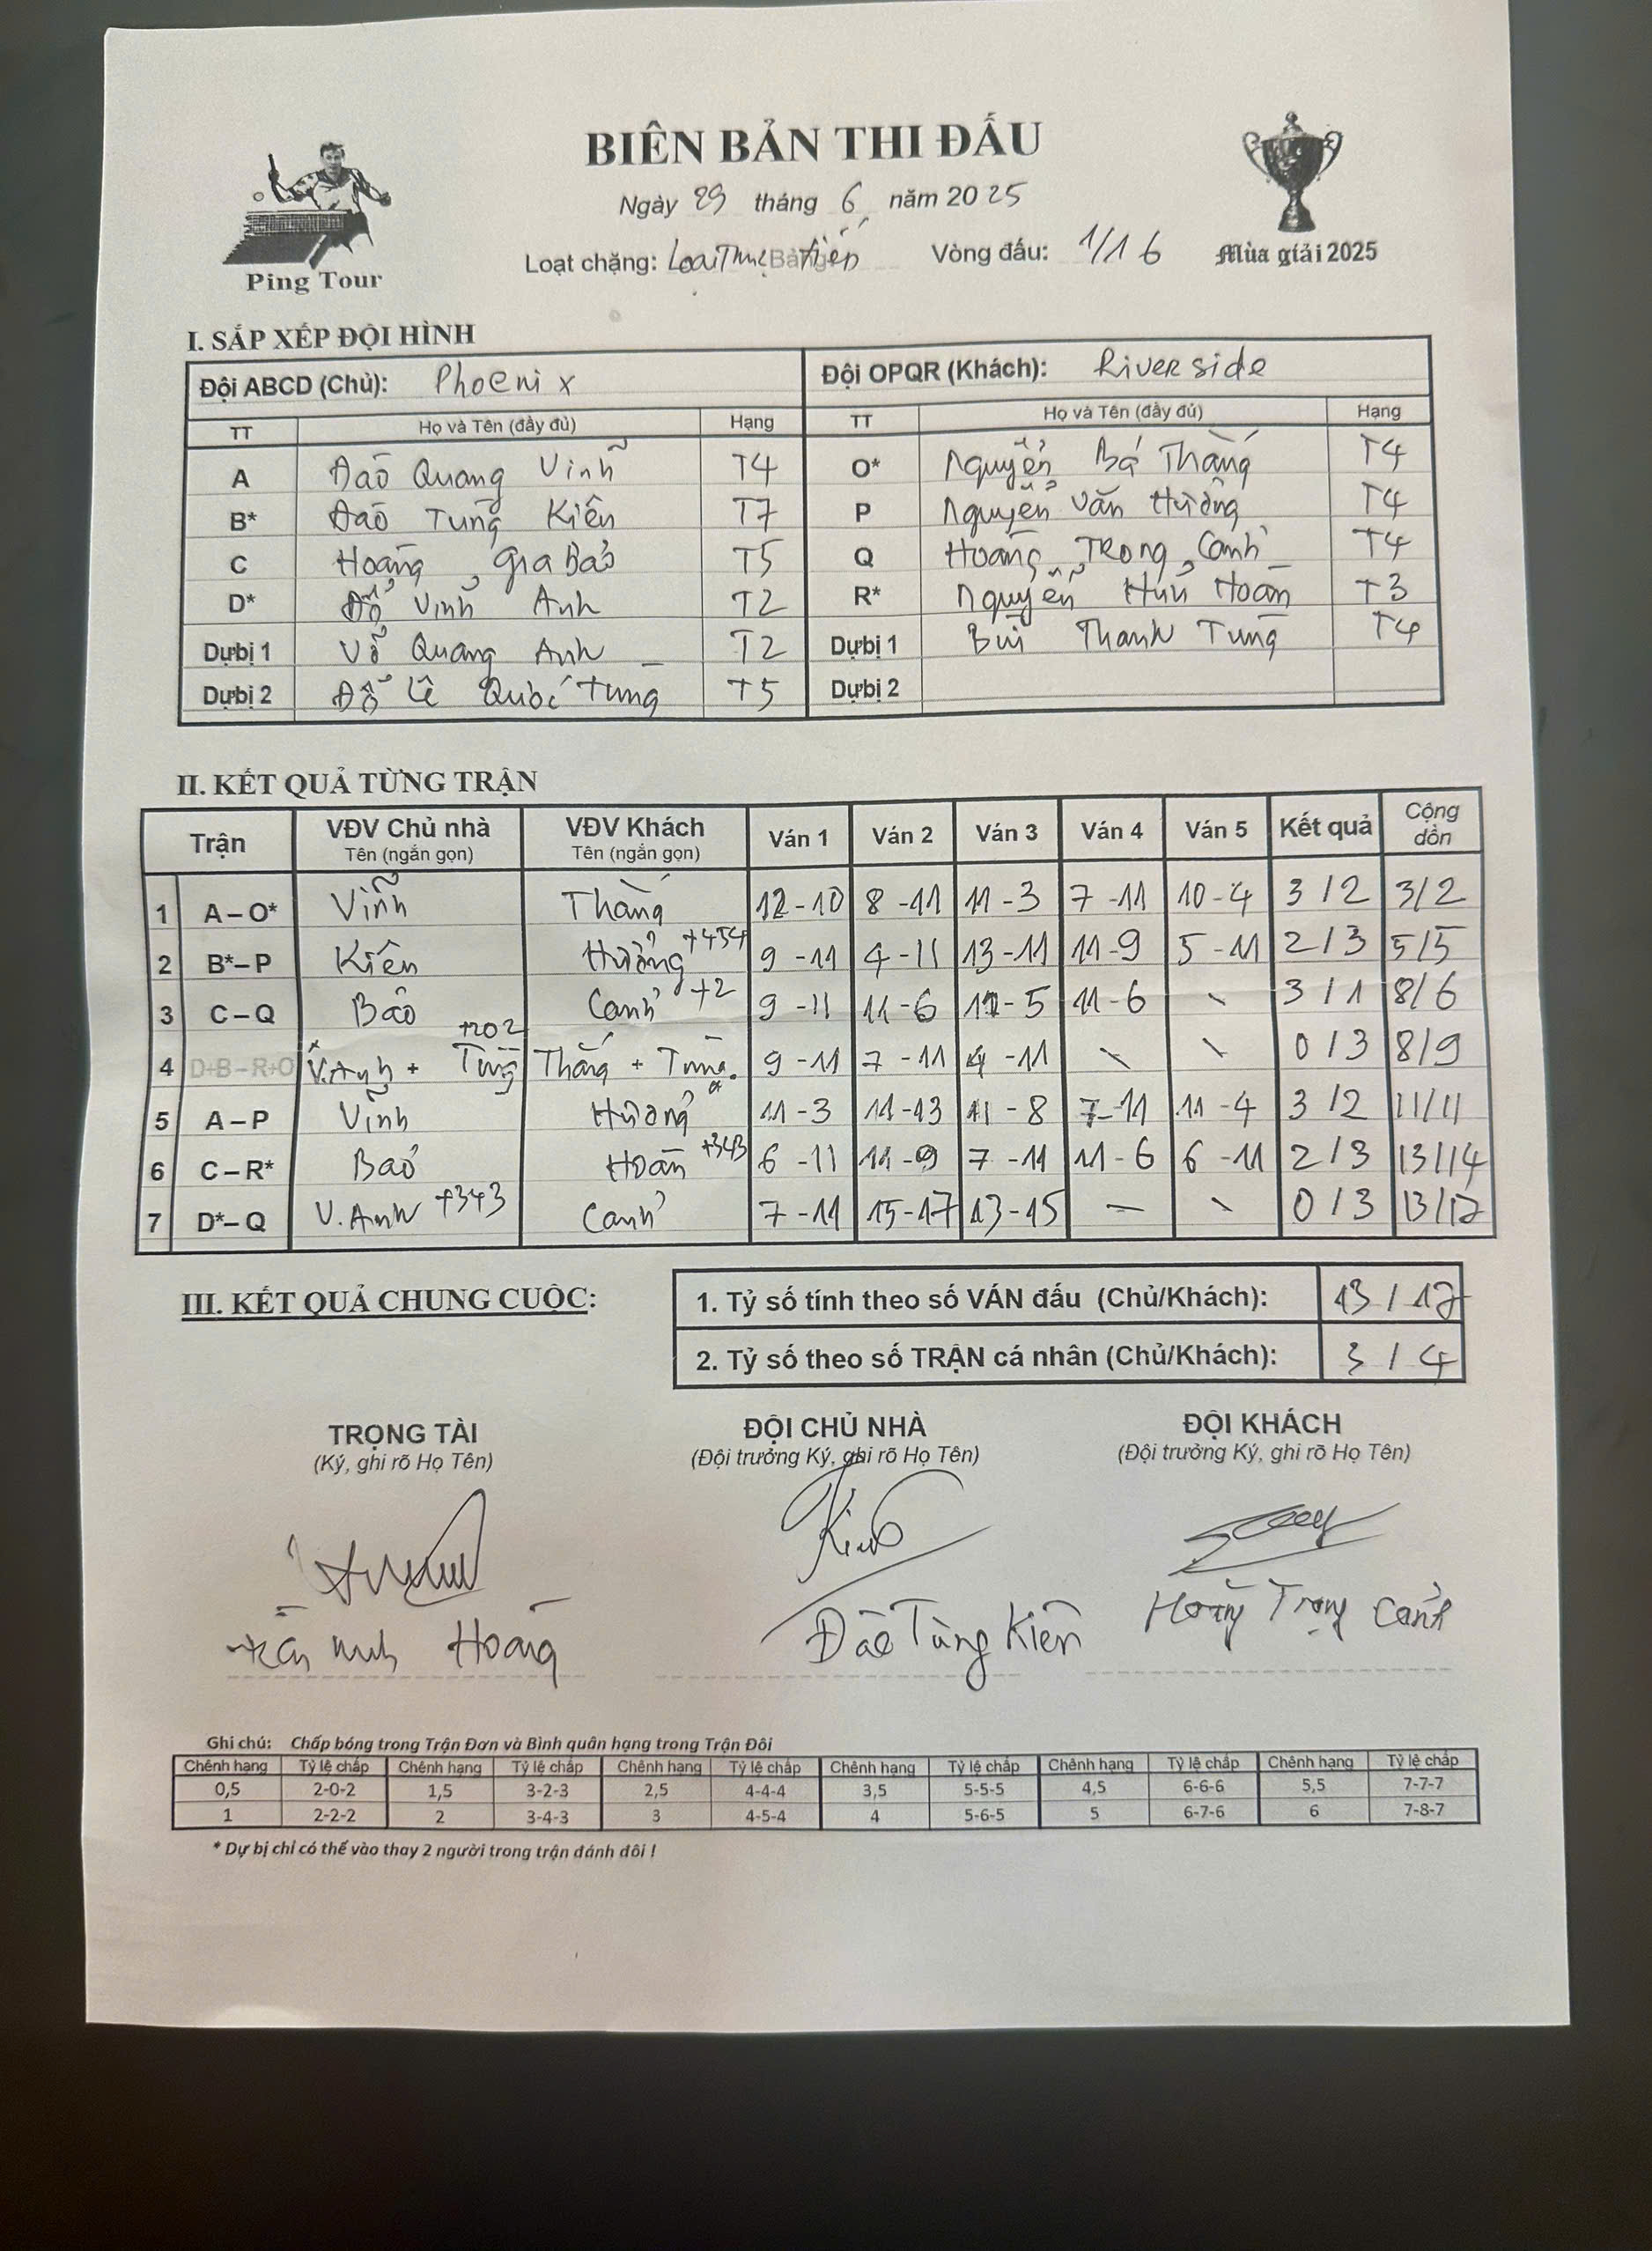 BIÊN BẢN THI ĐẤU
Ngày 29 tháng 6 năm 2025
Loạt chặng: Loại Trực tiếp Vòng đấu: 1/16
Ping Tour
Mùa giải 2025
I. SẮP XẾP ĐỘI HÌNH
Đội ABCD (Chủ): Phoenix Đội OPQR (Khách): Riverside
TT Họ và Tên (đầy đủ) Hạng TT Họ và Tên (đầy đủ) Hạng
A Đào Quang Vinh T4 O* Nguyễn Bá Thắng T4
B* Đào Tùng Kiên T7 P Nguyễn Văn Hưởng T4
C Hoàng Gia Bảo T5 Q Hoàng Trọng Cảnh T4
D* Đỗ Vinh Anh T2 R* Nguyễn Hữu Hoàn T3
Dự bị 1 Võ Quang Anh T2 Dự bị 1 Bùi Thanh Tùng T4
Dự bị 2 Đỗ Lê Quốc Tùng T5 Dự bị 2
II. KẾT QUẢ TỪNG TRẬN
Trận VĐV Chủ nhà VĐV Khách Ván 1 Ván 2 Ván 3 Ván 4 Ván 5 Kết quả Cộng dồn
Tên (ngắn gọn) Tên (ngắn gọn)
1 A – O* Vĩnh Thắng 12-10 8-11 11-3 7-11 10-4 3/2 3/2
2 B* – P Kiên Hưởng +454 9-11 4-11 13-11 11-9 5-11 2/3 5/5
3 C – Q Bảo Cảnh +2 9-11 11-6 11-5 11-6 \ 3/1 8/6
4 D+B – R+O V.Anh + Tùng +202 Thắng + Tùng 9-11 7-11 4-11 \ \ 0/3 8/9
5 A – P Vĩnh Hưởng 11-3 11-13 11-8 7-11 11-4 3/2 11/11
6 C – R* Bảo Hoàn +343 6-11 11-9 7-11 11-6 6-11 2/3 13/14
7 D* – Q V.Anh +343 Cảnh 7-11 15-17 13-15 — \ 0/3 13/17
III. KẾT QUẢ CHUNG CUỘC:
1. Tỷ số tính theo số VÁN đấu (Chủ/Khách): 13/17
2. Tỷ số theo số TRẬN cá nhân (Chủ/Khách): 3/4
TRỌNG TÀI ĐỘI CHỦ NHÀ ĐỘI KHÁCH
(Ký, ghi rõ Họ Tên) (Đội trưởng Ký, ghi rõ Họ Tên) (Đội trưởng Ký, ghi rõ Họ Tên)
Hoàng Đào Tùng Kiên Hoàng Trọng Cảnh
Ghi chú: Chấp bóng trong Trận Đơn và Bình quân hạng trong Trận Đôi
Chênh hạng Tỷ lệ chấp Chênh hạng Tỷ lệ chấp Chênh hạng Tỷ lệ chấp Chênh hạng Tỷ lệ chấp Chênh hạng Tỷ lệ chấp Chênh hạng Tỷ lệ chấp
0,5 2-0-2 1,5 3-2-3 2,5 4-4-4 3,5 5-5-5 4,5 6-6-6 5,5 7-7-7
1 2-2-2 2 3-4-3 3 4-5-4 4 5-6-5 5 6-7-6 6 7-8-7
* Dự bị chỉ có thể vào thay 2 người trong trận đánh đôi !